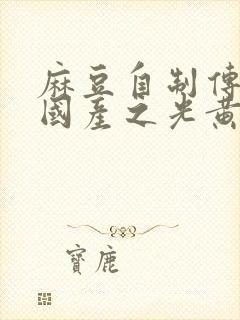 麻豆自制傳
國産之光黄
寶鹿